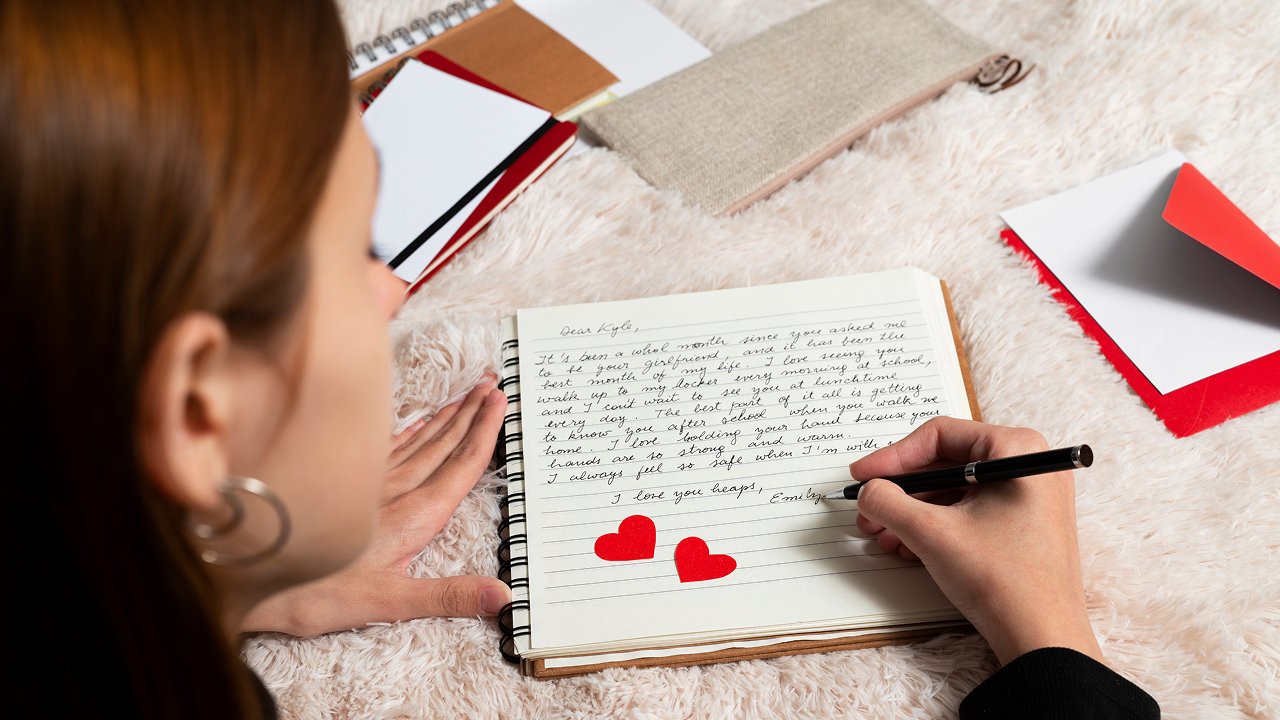 Dear Kyle,
It's been a whol month since you asked me
to be your girlfriend, and it has been the
best month of my life. I love seeing you
walk up to my locker every morning at school,
and I can't wait to see you at lunchtime
every day. The best part of it all is getting
to know you after school when you walk me
home. I love holding your hand because your
hands are so strong and warm.
I always fell so safe when I'm with
I love you heaps,
Emily